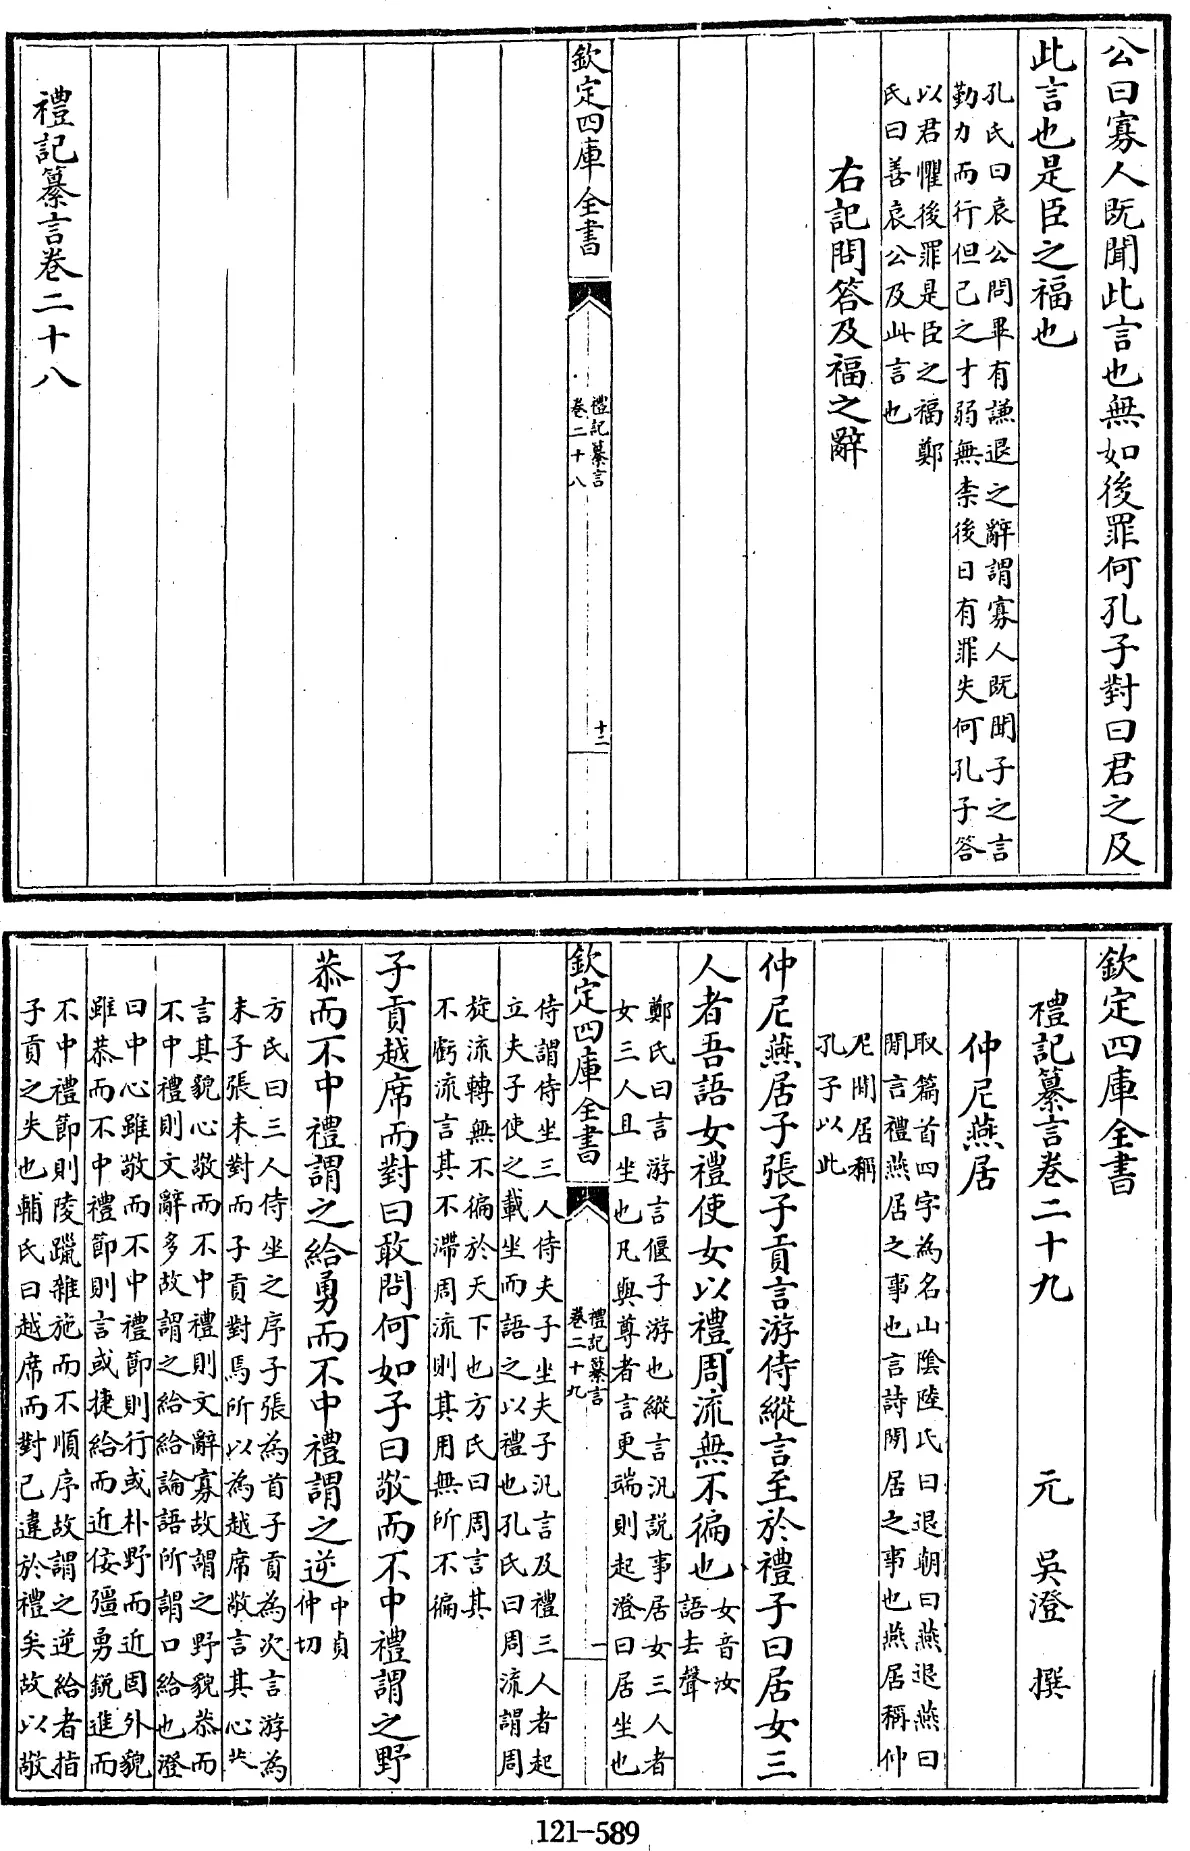 公曰寡人既聞此言也無如後罪何孔子對曰君之及
此言也是臣之福也
孔氏曰哀公問畢有謙退之辭謂寡人既聞子之言
勤力而行但己之才弱無柰後日有罪失何孔子答
以君懼後罪是臣之福鄭
氏曰善哀公及此言也
右記問答及福之辭
欽定四庫全書
禮記纂言
卷二十八
十二
禮記纂言卷二十八
欽定四庫全書
禮記纂言卷二十九 元 吳澄 撰
仲尼燕居
取篇首四字為名山陰陸氏曰退朝曰燕退燕曰
閒言禮燕居之事也言詩閒居之事也燕居稱仲
尼閒居稱
孔子以此
仲尼燕居子張子貢言游侍縱言至於禮子曰居女三
人者吾語女禮使女以禮周流無不徧也
女音汝
語去聲
鄭氏曰言游言偃子游也縱言汎說事居女三人者
女三人且坐也凡與尊者言更端則起澄曰居坐也
欽定四庫全書
禮記纂言
卷二十九
一
侍謂侍坐三人侍夫子坐夫子汎言及禮三人者起
立夫子使之載坐而語之以禮也孔氏曰周流謂周
旋流轉無不徧於天下也方氏曰周言其
不虧流言其不滯周流則其用無所不徧
子貢越席而對曰敢問何如子曰敬而不中禮謂之野
恭而不中禮謂之給勇而不中禮謂之逆
中貞
仲切
方氏曰三人侍坐之序子張為首子貢為次言游為
末子張未對而子貢對焉所以為越席敬言其心恭
言其貌心敬而不中禮則文辭寡故謂之野貌恭而
不中禮則文辭多故謂之給給論語所謂口給也澄
曰中心雖敬而不中禮節則行或朴野而近固外貌
雖恭而不中禮節則言或捷給而近佞彊勇銳進而
不中禮節則陵躐雜施而不順序故謂之逆給者指
子貢之失也輔氏曰越席而對已違於禮矣故以敬
121-589